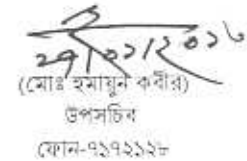 ২৭/০১/২০১৬
(মোঃ হুমায়ুন কবীর)
উপসচিব
ফোন-৭১৭২১২৮